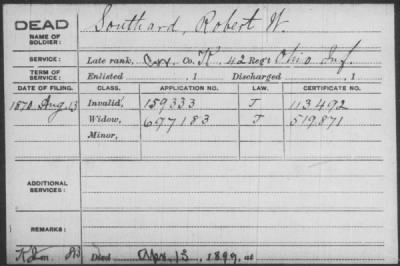 DEAD Southard, Robert W.
NAME OF SOLDIER:
SERVICE: Late rank, Co. K, 42 Reg't Ohio Inf.
TERM OF SERVICE: Enlisted , 1 Discharged , 1
DATE OF FILING. CLASS. APPLICATION NO. LAW. CERTIFICATE NO.
1870 Aug. 13 Invalid, 159333 J 113492
Widow, 697183 J 519871
Minor,
ADDITIONAL SERVICES:
REMARKS:
Died Apr. 13, 1899, at